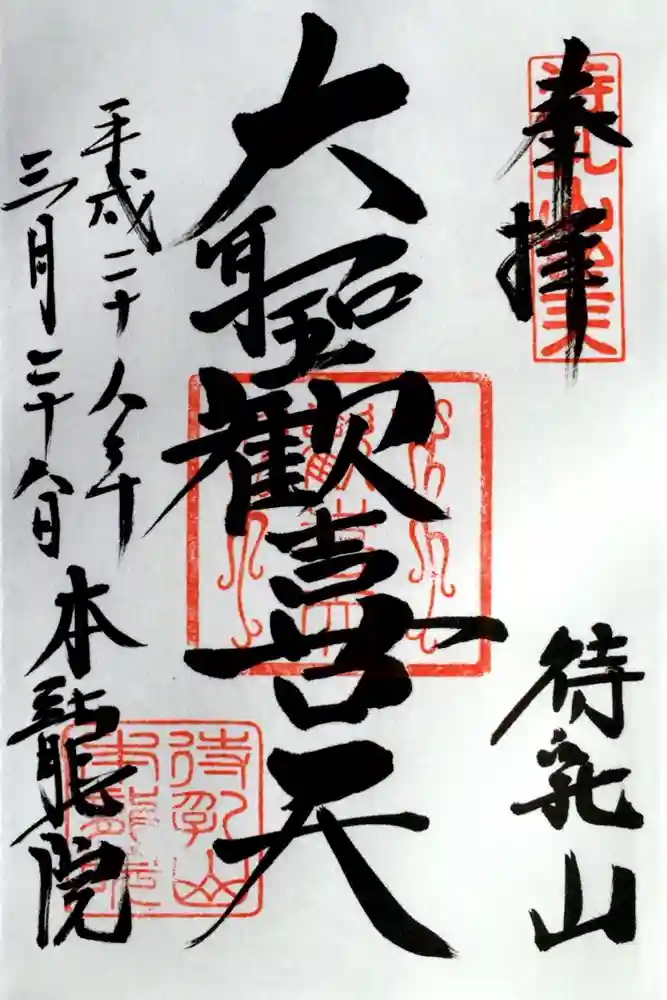 奉拝
待乳山
大聖歡喜天
平成二十八年
三月二十八日
本龍院
待乳山聖天
待乳山
本龍院